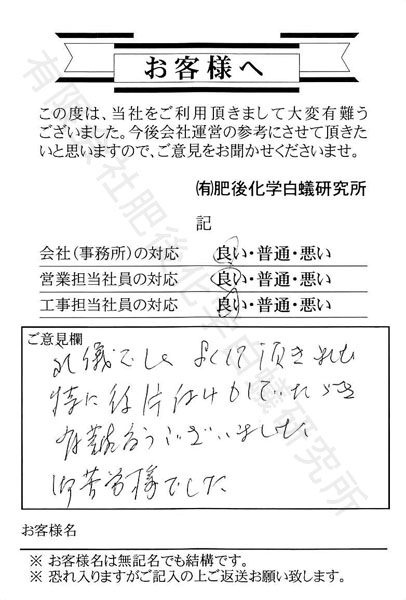 お客様へ
この度は、当社をご利用頂きまして大変有難う
ございました。今後会社運営の参考にさせて頂きた
いと思いますので、ご意見をお聞かせくださいませ。
㈲肥後化学白蟻研究所
記
会社(事務所)の対応 良い・普通・悪い
営業担当社員の対応 良い・普通・悪い
工事担当社員の対応 良い・普通・悪い
ご意見欄
礼儀正しくよくして頂きました
特に後片付けもしていただき
有難うございました
御苦労様でした
お客様名
※ お客様名は無記名でも結構です。
※ 恐れ入りますがご記入の上ご返送お願い致します。
有限会社肥後化学白蟻研究所